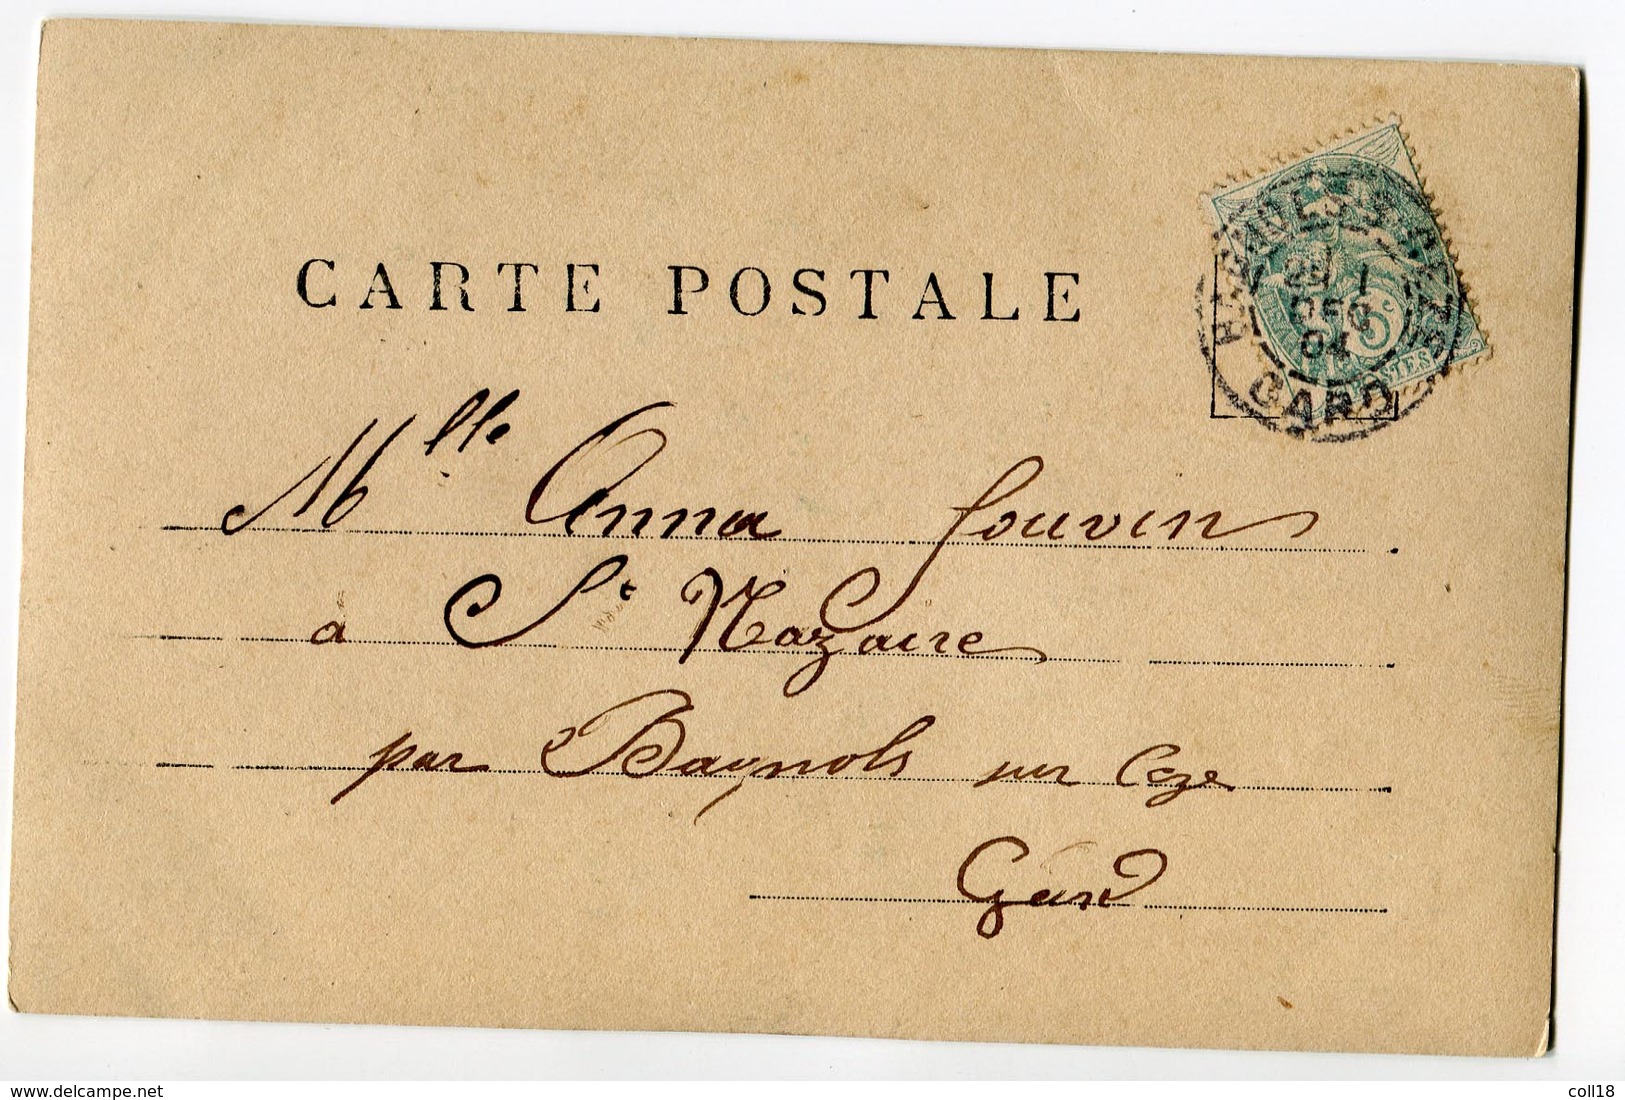 CARTE POSTALE
DEC
04
GARD
5c
POSTES
Mlle Anna Jouvin
à St Nazaire
par Bagnols sur Cèze
Gard
www.delcampe.net
coll18